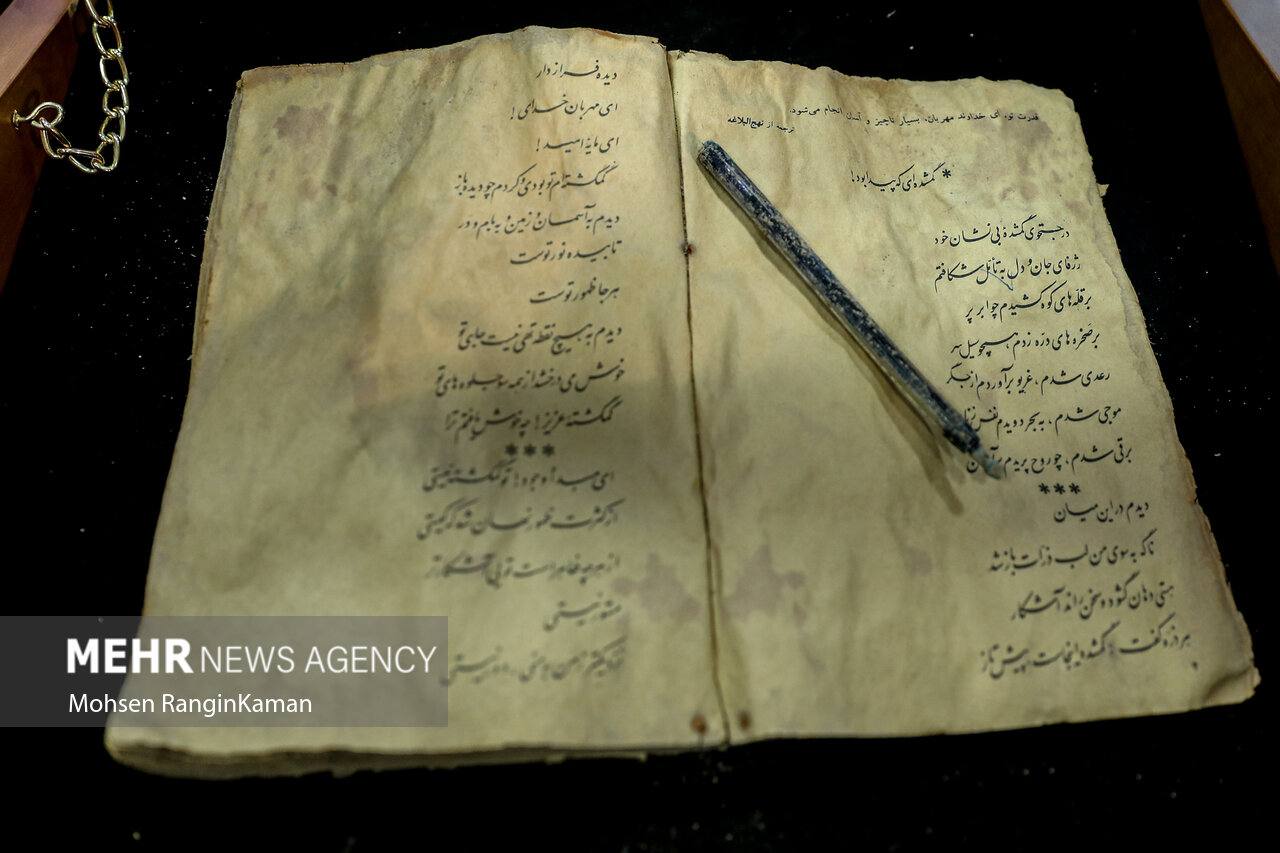 قدرت تو، ای خداوند مهربان، بسیار ناچیز و آسان انجام می‌شود.
ترجمه از نهج‌البلاغه
* گمشده‌ای که پیدا بود!
در جستجوی گمشدهٔ بی نشان خود
ژرفای جان و دل به تأمل شکافتم
بر قلّه‌های کوه کشیدم چو ابر پر
بر صخره های درّه زدم، همچو سیل سر
رعدی شدم، غریو برآوردم از جگر
موجی شدم، به بحر دویدم نفس زنان
برقی شدم، چو روح پریدم بر آسمان
***
دیدم در این میان
ناگه به سوی من لب ذرات باز شد
هستی دهان گشود و سخن راند آشکار
هر ذره گفت: گمشده اینجاست پیش تاز
دیده فراز دار
ای مهربان خدای!
ای مایهٔ امید!
گمگشته‌ام تو بودی و کردم چو دیده باز
دیدم به آسمان و زمین و به بام و در
تابیده نور توست
هر جا ظهور توست
دیدم به هیچ نقطه تهی نیست جای تو
خوش می درخشد از همه سو جلوه های تو
گمگشتهٔ عزیز! چه خوش یافتم ترا
***
ای مبدأ وجود! تو گمگشته نیستی
از کثرت ظهور نهان شد که کیستی
از هر چه ظاهر است تویی آشکارتر
مستور نیستی
نیستی
MEHR NEWS AGENCY
Mohsen RanginKaman